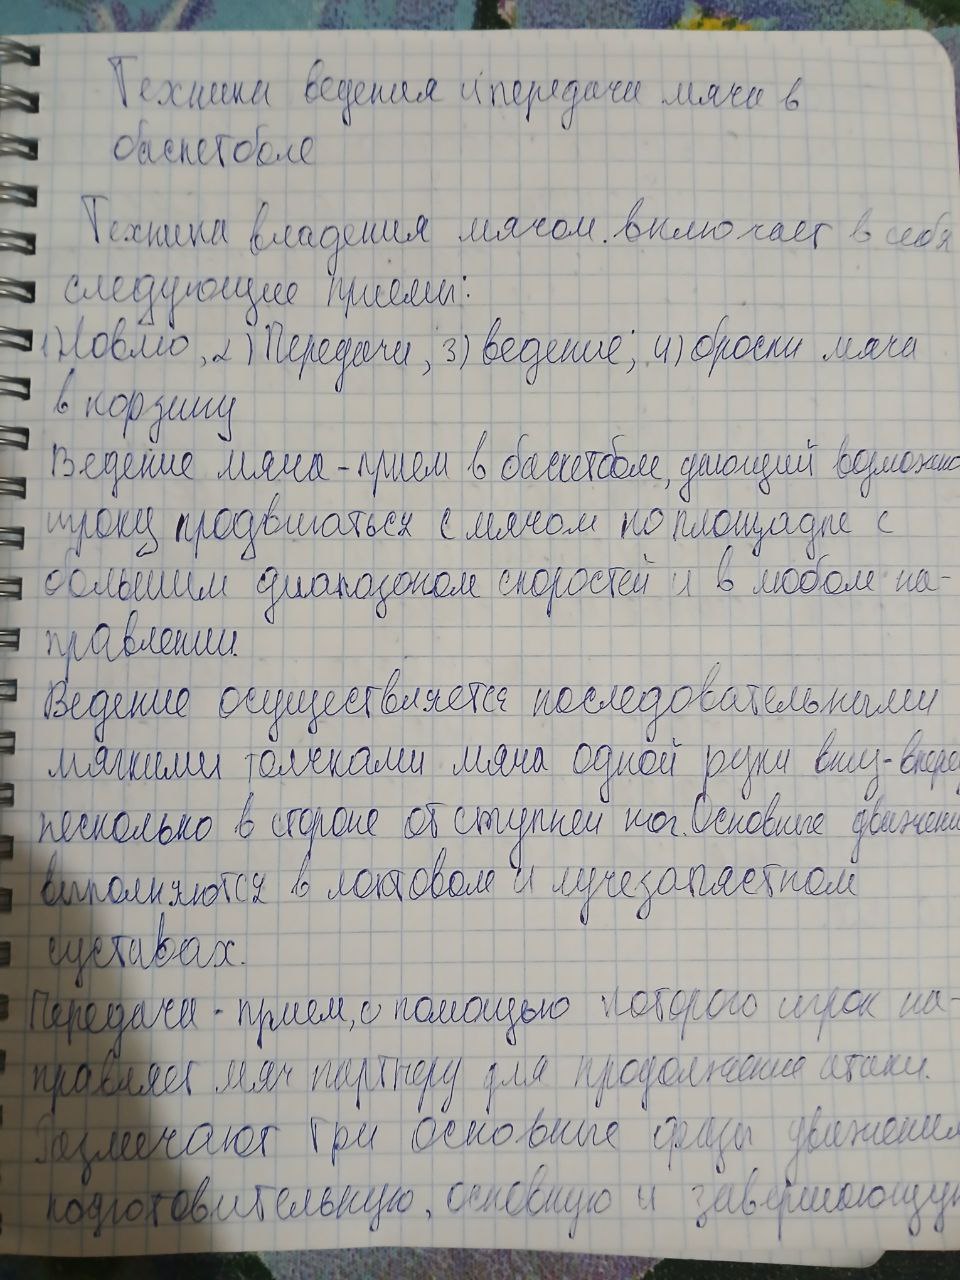 Техника ведения и передачи мяча в
баскетболе
Техника владения мячом включает в себя
следующие приемы:
1) Ловлю, 2) Передачи, 3) ведение; 4) броски мяча
в корзину
Ведение мяча - прием в баскетболе, дающий возможно
игроку продвигаться с мячом по площадке с
большим диапазоном скоростей и в любом на-
правлении.
Ведение осуществляется последовательными
мягкими толчками мяча одной руки вниз-вперед
несколько в стороне от ступней ног. Основные движени
выполняются в локтовом и лучезапястном
суставах.
Передача - прием, с помощью которого игрок на-
правляет мяч партнеру для продолжение атаки.
Размечают три основные фазы движения
подготовительную, основную и завершающую